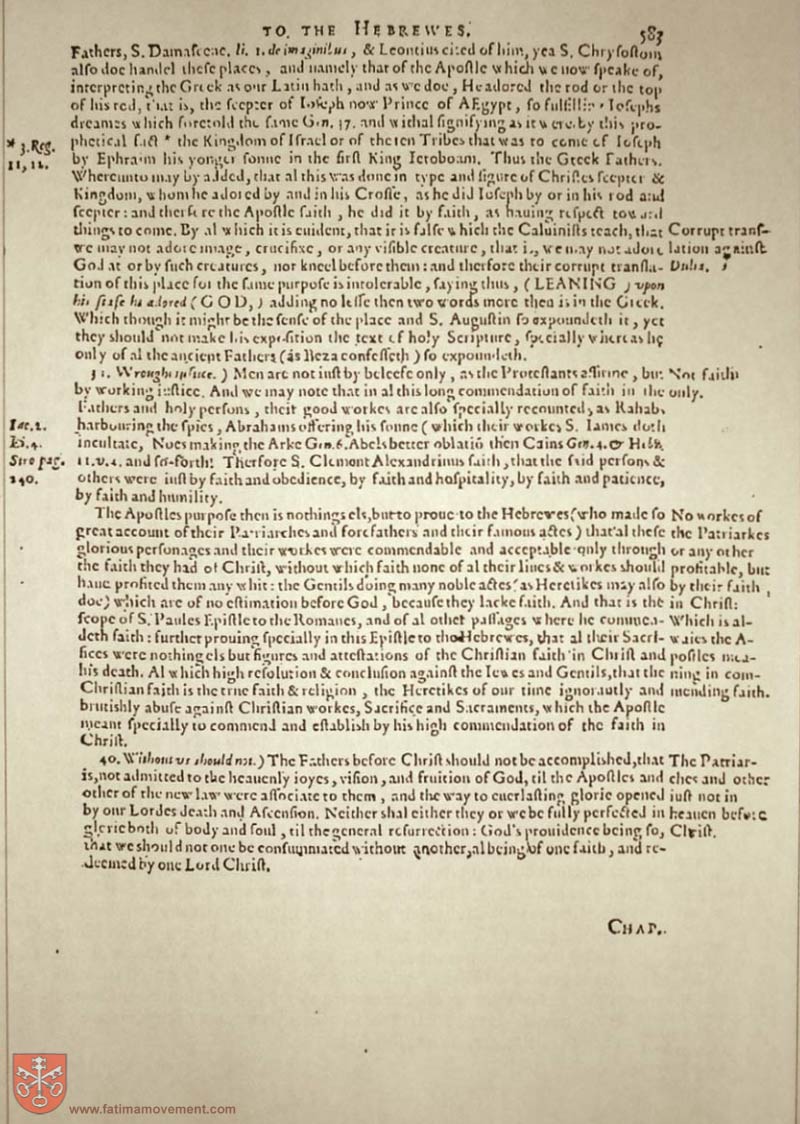 TO THE HEBREWES.
583
Fathers, S. Damascene. li. 1. de imaginibus, & Leontius cited of him, yea S. Chrysostom
also doe handel these places, and namely that of the Apostle which we now speake of,
interpreting the Greek as our Latin hath, and as we doe, He adored the rod or the top
of his rod, that is, the scepter of Ioseph now Prince of AEgypt, so fulfilling Iosephs
dreames which foretold the same Gen. 37. and withal signifying as it were by this pro-
phetical fact * the Kingdom of Israel or of the ten Tribes that was to come of Ioseph
by Ephraim his yonger sonne in the first King Ieroboam. Thus the Greek Fathers.
Whereunto may by added, that al this was done in type and figure of Christes scepter &
Kingdom, whom he adored by and in his Crosse, as he did Ioseph by or in his rod and
scepter: and therfore the Apostle saith, he did it by faith, as hauing respect toward
things to come. By al which it is euident, that it is false which the Caluinists teach, that
we may not adore image, crucifixe, or any visible creature, that is, we may not adore
God at or by such creatures, nor kneel before them: and therfore their corrupt transla-
tion of this place for the same purpose is intolerable, saying thus, (LEANING) upon
his staffe he adored (GOD,) adding no lesse then two words more then is in the Greek.
Which though it might be the sense of the place and S. Augustin so expoundeth it, yet
they should not make his exposition the text of holy Scripture, specially whereas he
only of al the ancient Fathers (as Beza confesseth) so expoundeth.
* 3. Reg.
11, 12.
Corrupt trans-
lation against
Wrought iustice.) Men are not iust by beleefe only, as the Protestants affirme, but
by working iustice. And we may note that in al this long commendation of faith in the
Fathers and holy persons, their good workes are also specially recounted, as Rahabs
harbouring the spies, Abrahams offering his sonne (which their workes S. Iames doth
inculcate, Noes making the Arke Gen. 6. Abels better oblatiō then Cains Gen. 4. & Hebr.
11. v. 4. and so-forth! Therfore S. Clement Alexandrinus saith, that the said persons &
others were iust by faith and obedience, by faith and hospitality, by faith and patience,
by faith and humility.
Not faith
only.
Iac. 2.
li. 4.
Stro pag.
240.
The Apostles purpose then is nothing els, but to proue to the Hebrewes (who made so
great account of their Patriarches and forefathers and their famous actes) that al these
glorious personages and their workes were commendable and acceptable only through
the faith they had of Christ, without which faith none of al their liues & workes should
haue profited them any whit: the Gentils doing many noble actes (as Heretikes may also
doe) which are of no estimation before God, because they lacke faith. And that is the
scope of S. Paules Epistle to the Romanes, and of al other passages where he commen-
deth faith: further prouing specially in this Epistle to the Hebrewes, that al their Sacri-
fices were nothing els but figures and attestations of the Christian faith in Christ and
his death. Al which high resolution & conclusion against the Iewes and Gentils, that the
Christian faith is the true faith & religion, the Heretikes of our time ignorantly and
brutishly abuse against Christian workes, Sacrifice and Sacraments, which the Apostle
meant specially to commend and establish by his high commendation of the faith in
Christ.
No workes of
the Patriarkes
or any other
profitable, but
by their faith
in Christ:
Which is al-
waies the A-
postles mea-
ning in com-
mending faith.
40. Without us should not.) The Fathers before Christ should not be accomplished, that
is, not admitted to the heauenly ioyes, vision, and fruition of God, til the Apostles and
other of the new law were associate to them, and the way to euerlasting glorie opened
by our Lordes death and Ascension. Neither shal either they or we be fully perfected in
glorie both of body and soul, til the general resurrection: God's prouidence being so,
that we should not one be consummated without another, al being of one faith, and re-
deemed by one Lord Christ.
The Patriar-
ches and other
iust not in
heauen before
Christ.
CHAP.
www.fatimamovement.com